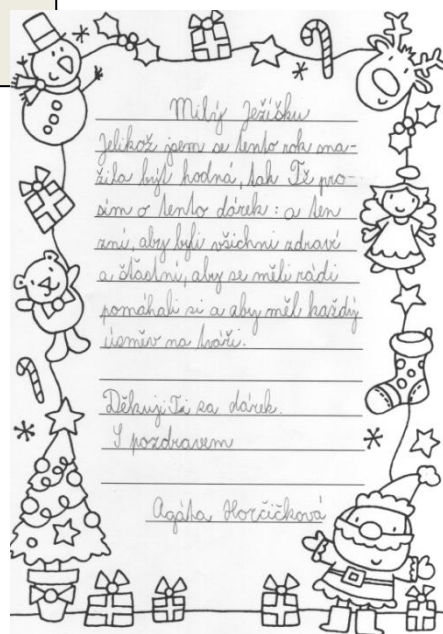 Milý Ježíšku
Jelikož jsem se tento rok sna-
žila být hodná, tak Tě pro-
sím o tento dárek: a ten
zní, aby byli všichni zdraví
a šťastní, aby se měli rádi
pomáhali si a aby měl každý
úsměv na tváři.
Děkuji Ti za dárek.
S pozdravem
Agáta Horčičková